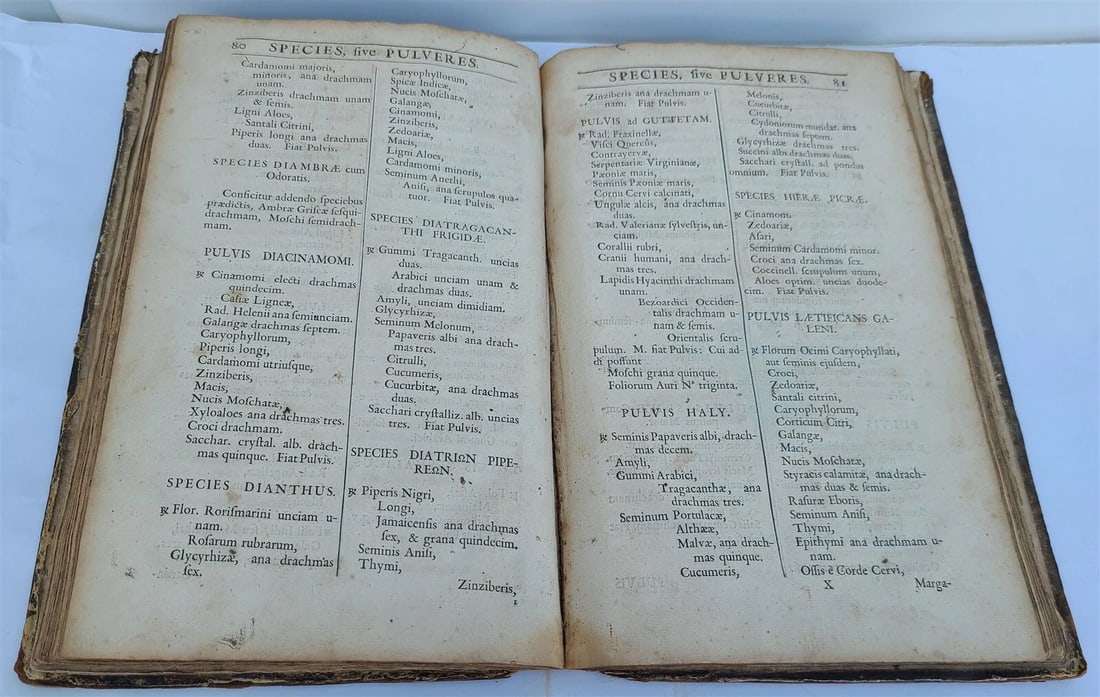 80 SPECIES, sive PULVERES.
Cardamomi majoris,
minoris, ana drachmam
unam.
Zinziberis drachmam unam
& semis.
Ligni Aloes,
Santali Citrini,
Piperis longi ana drachmas
duas. Fiat Pulvis.
SPECIES DIAMBRÆ cum
Odoratis.
Conficitur addendo speciebus
prædictis, Ambræ Griseæ sesqui-
drachmam, Moschi semidrach-
mam.
PULVIS DIACINAMOMI.
℞ Cinamomi electi drachmas
quindecim.
Casiæ Ligneæ,
Rad. Helenii ana semiunciam.
Galangæ drachmas septem.
Caryophyllorum,
Piperis longi,
Cardamomi utriusque,
Zinziberis,
Macis,
Nucis Moschatæ,
Xyloaloes ana drachmas tres.
Croci drachmam.
Sacchar. crystal. alb. drach-
mas quinque. Fiat Pulvis.
SPECIES DIANTHUS.
℞ Flor. Rorismarini unciam u-
nam.
Rosarum rubrarum,
Glycyrhizæ, ana drachmas
sex.
Caryophyllorum,
Spicæ Indicæ,
Nucis Moschatæ,
Galangæ,
Cinamomi,
Zinziberis,
Zedoariæ,
Macis,
Ligni Aloes,
Cardamomi minoris,
Seminum Anethi,
Anisi, ana scrupulos qua-
tuor. Fiat Pulvis.
SPECIES DIATRAGACAN-
THI FRIGIDÆ.
℞ Gummi Tragacanth. uncias
duas.
Arabici unciam unam &
drachmas duas.
Amyli, unciam dimidiam.
Glycyrhizæ,
Seminum Melonum,
Papaveris albi ana drach-
mas tres.
Citrulli,
Cucumeris,
Cucurbitæ, ana drachmas
duas.
Sacchari crystalliz. alb. uncias
tres. Fiat Pulvis.
SPECIES DIATRIΩN PIPE-
REΩN.
℞ Piperis Nigri,
Longi,
Jamaicensis ana drachmas
sex, & grana quindecim.
Seminis Anisi,
Thymi,
Zinziberis,
SPECIES, sive PULVERES. 81
Zinziberis ana drachmam u-
nam. Fiat Pulvis.
PULVIS ad GUTTETAM.
℞ Rad. Fraxinellæ,
Visci Quercus,
Contrayervæ,
Serpentariæ Virginianæ,
Pæoniæ maris,
Seminis Pæoniæ maris,
Cornu Cervi calcinati,
Ungulæ alcis, ana drachmas
duas.
Rad. Valerianæ sylvestris, un-
ciam.
Corallii rubri,
Cranii humani, ana drach-
mas tres.
Lapidis Hyacinthi drachmam
unam.
Bezoardici Occiden-
talis drachmam u-
nam & semis.
Orientalis scru-
pulum. M. fiat Pulvis: Cui ad-
di possunt
Moschi grana quinque.
Foliorum Auri N° triginta.
PULVIS HALY.
℞ Seminis Papaveris albi, drach-
mas decem.
Amyli,
Gummi Arabici,
Tragacanthæ, ana
drachmas tres.
Seminum Portulacæ,
Althææ,
Malvæ, ana drach-
mas quinque.
Cucumeris,
Melonis,
Cucurbitæ,
Citrulli,
Cydoniorum mundat. ana
drachmas septem.
Glycyrhizæ drachmas tres.
Succini albi drachmas duas.
Sacchari crystall. ad pondus
omnium. Fiat Pulvis.
SPECIES HIERÆ PICRÆ.
℞ Cinamom.
Zedoariæ,
Asari,
Seminum Cardamomi minor.
Croci ana drachmas sex.
Coccinell. scrupulum unum,
Aloes optim. uncias duode-
cim. Fiat Pulvis.
PULVIS LÆTIFICANS GA-
LENI.
℞ Florum Ocimi Caryophyllati,
aut seminis ejusdem,
Croci,
Zedoariæ,
Santali citrini,
Caryophyllorum,
Corticum Citri,
Galangæ,
Macis,
Nucis Moschatæ,
Styracis calamitæ, ana drach-
mas duas & semis.
Rasuræ Eboris,
Seminum Anisi,
Thymi,
Epithymi ana drachmam u-
nam.
Ossis è Corde Cervi,
X Marga-